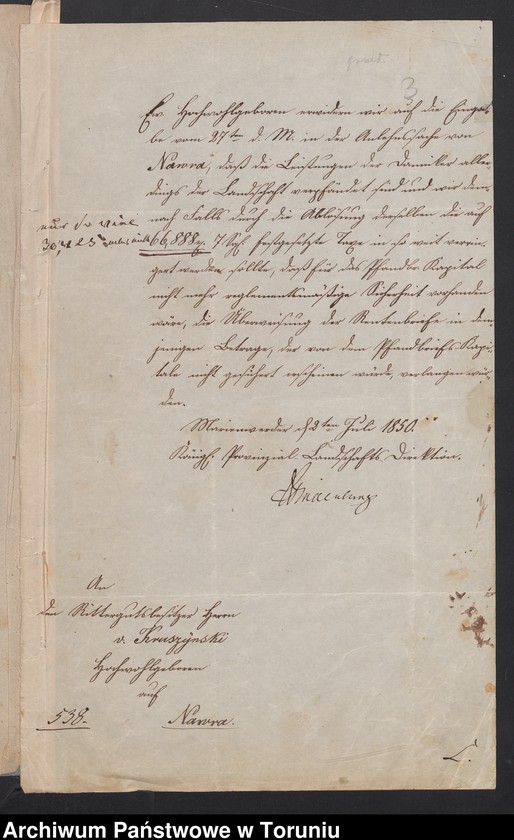 3
Ew. Hochwohlgeboren erwidern wir auf die Einga-
be vom 27ten d. M. in der Anlehnssache von
Nawra, daß die Leistungen der Danniker aller-
dings der Landschaft verpfändet sind und wir dem-
nach Falls durch die Ablösung derselben die auf
nur so viel
66,888 festgesetzte Taxe in so weit verrin-
gert werden sollte, daß für das Pfandbr. Kapital
nicht mehr reglementsmäßige Sicherheit vorhanden
wäre, die Überweisung der Rentenbriefe in dem-
jenigen Betrage, der von dem Pfandbriefs-Kapi-
tale nicht gesichert erscheinen würde, verlangen wür-
den.
Marienwerder d 2ten Juli 1850.
Königl. Provinzial Landschafts Direktion.
An
den Rittergutsbesitzer Herrn
v. Kruszynski
Hochwohlgeboren
auf
538.
Nawra.
L.
Archiwum Państwowe w Toruniu